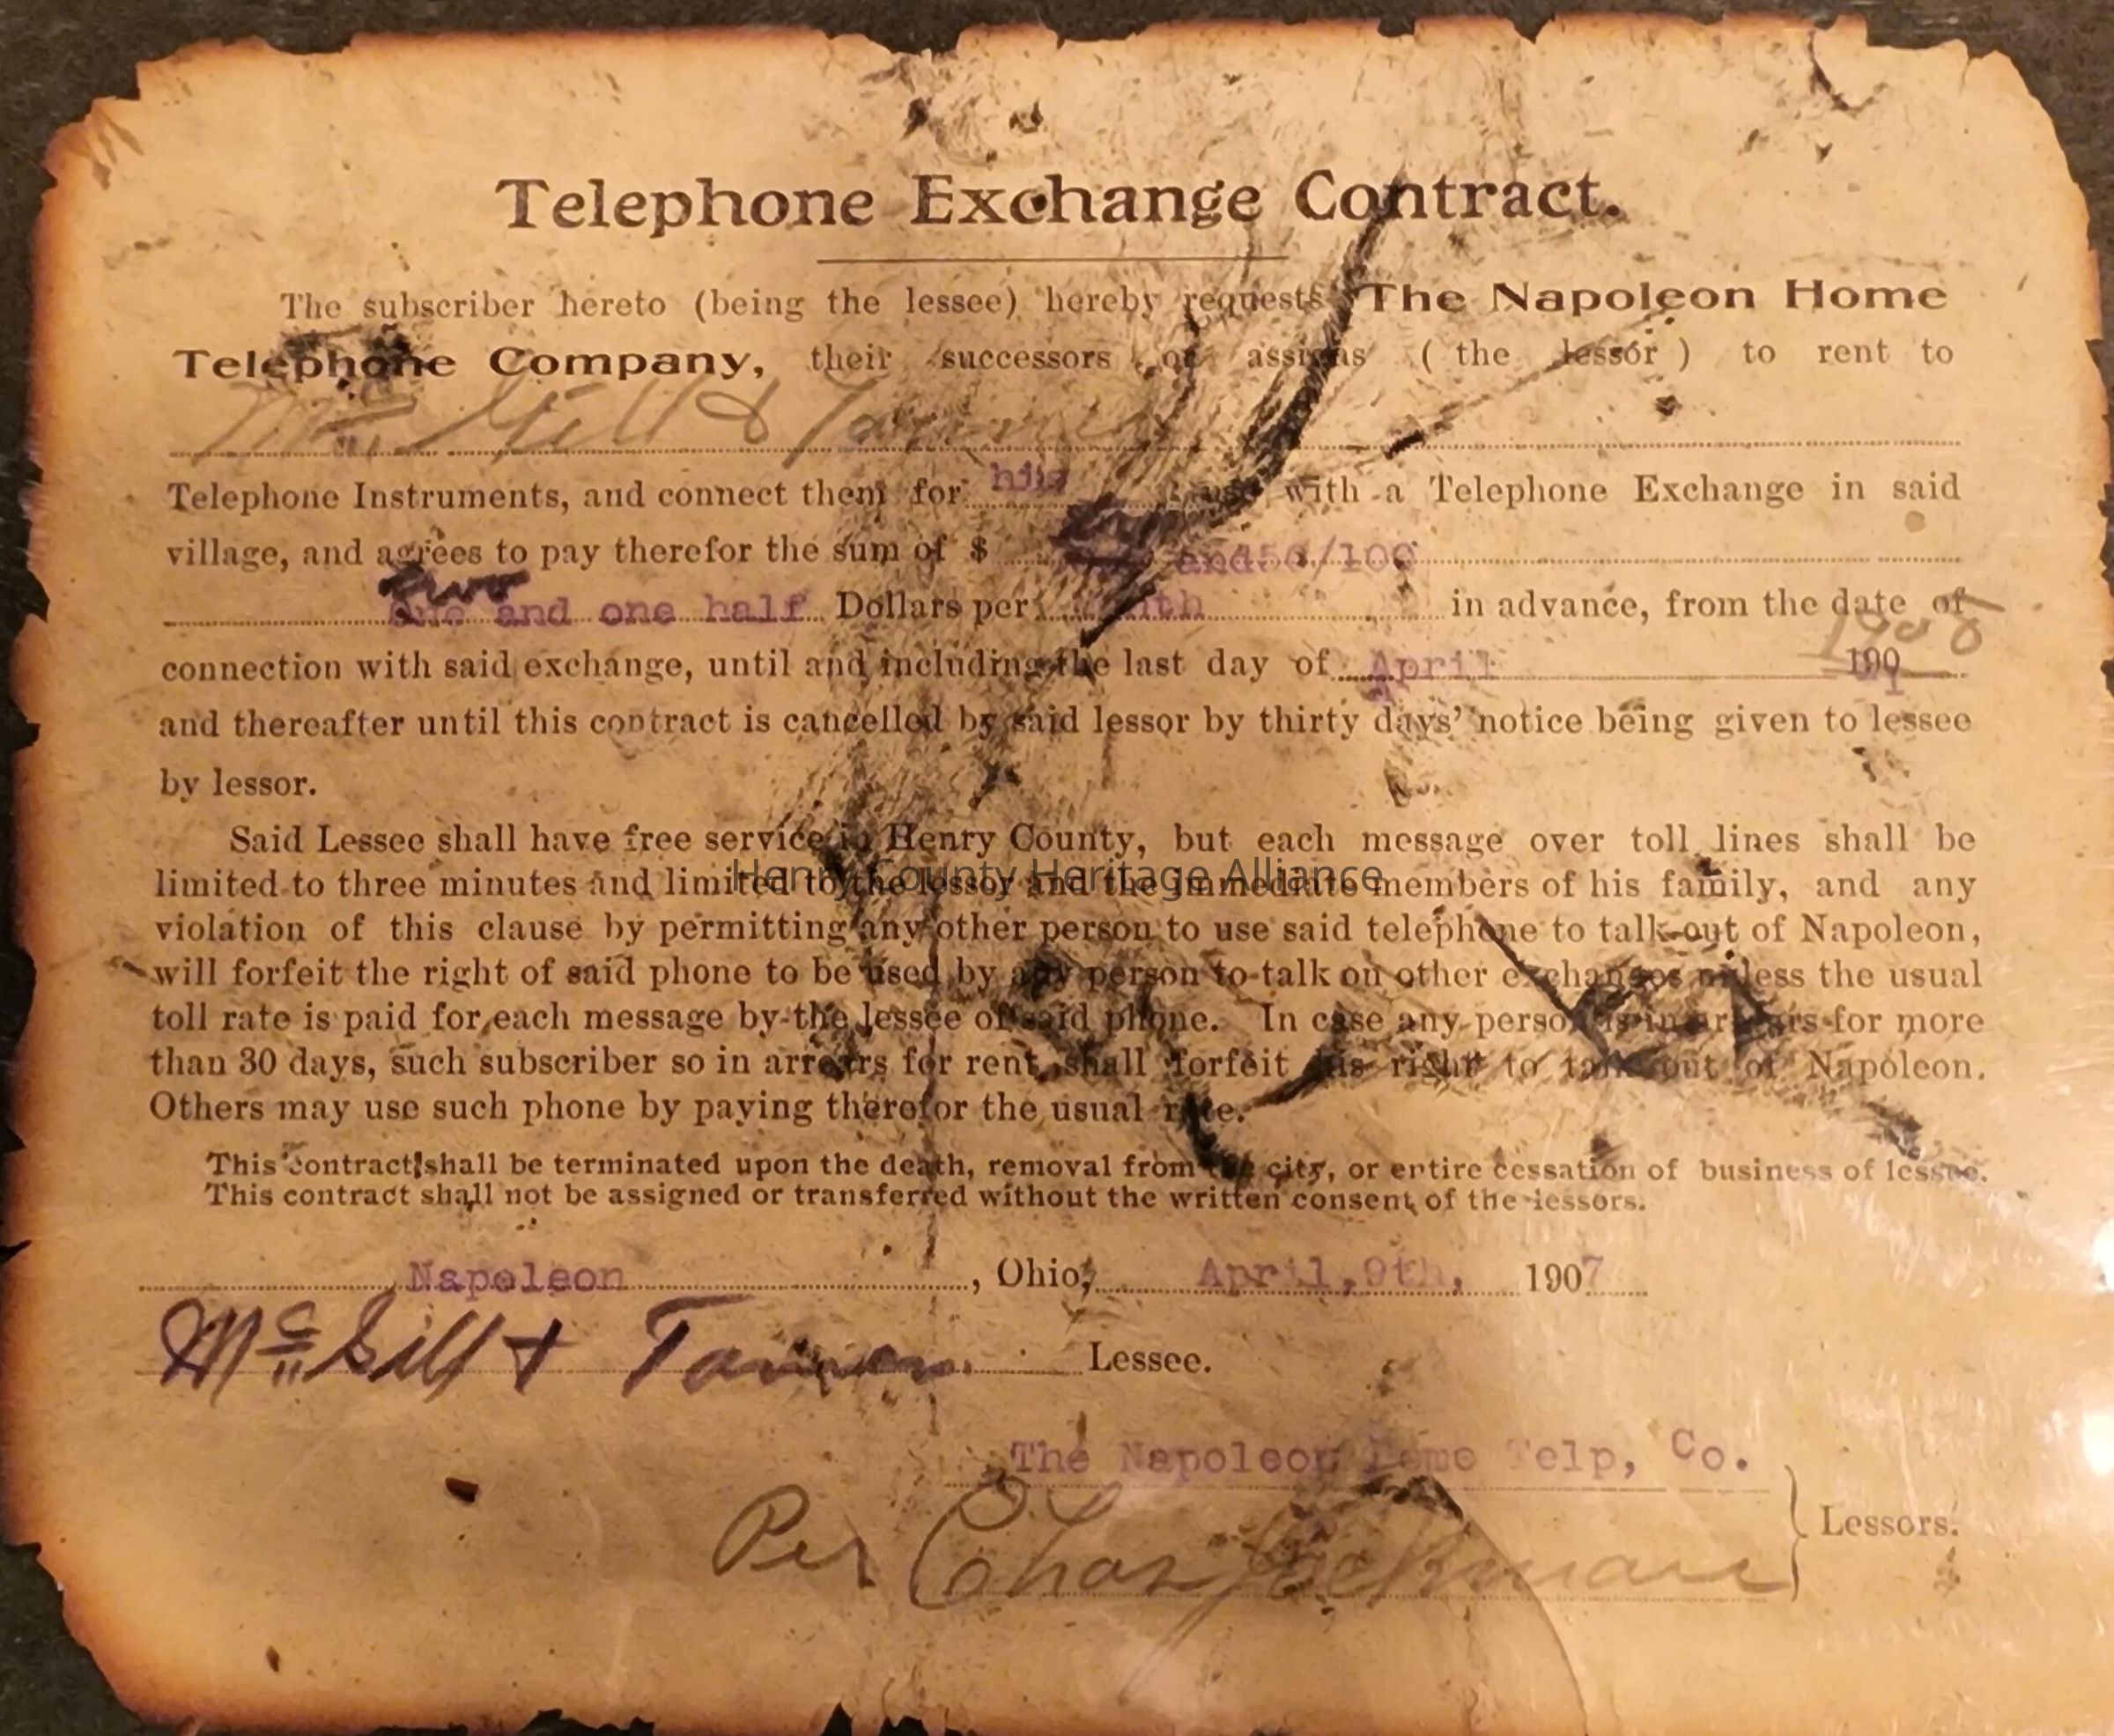 Telephone Exchange Contract.
The subscriber hereto (being the lessee) hereby requests The Napoleon Home
Telephone Company, their successors or assigns ( the lessor ) to rent to
Mc Gill & Tanner
Telephone Instruments, and connect them for his use with a Telephone Exchange in said
village, and agrees to pay therefor the sum of $ and 50/100
two
One and one half Dollars per month in advance, from the date of
1908
connection with said exchange, until and including the last day of April 190
and thereafter until this contract is cancelled by said lessor by thirty days' notice being given to lessee
by lessor.
Said Lessee shall have free service in Henry County, but each message over toll lines shall be
limited to three minutes and limited to the lessor and the immediate members of his family, and any
Henry County Heritage Alliance
violation of this clause by permitting any other person to use said telephone to talk out of Napoleon,
will forfeit the right of said phone to be used by any person to talk on other exchanges unless the usual
toll rate is paid for each message by the lessee of said phone. In case any person is in arrears for more
than 30 days, such subscriber so in arrears for rent, shall forfeit his right to talk out of Napoleon.
Others may use such phone by paying therefor the usual rate.
This contract shall be terminated upon the death, removal from the city, or entire cessation of business of lessee.
This contract shall not be assigned or transferred without the written consent of the lessors.
Napoleon, Ohio, April, 9th, 1907
Mc Gill & Tanner. Lessee.
The Napoleon Home Telp, Co.
Per Chas Lessors.